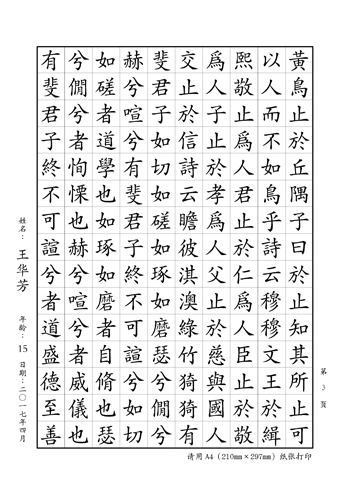 黃鳥止於丘隅子曰於止知其所止可
以人而不如鳥乎詩云穆穆文王於緝
熙敬止爲人君止於仁爲人臣止於敬
爲人子止於孝爲人父止於慈與國人
交止於信詩云瞻彼淇澳綠竹猗猗有
斐君子如切如磋如琢如磨瑟兮僩兮
赫兮喧兮有斐君子終不可諠兮如切
如磋者道學也如琢如磨者自脩也瑟
兮僩兮者恂慄也赫兮喧兮者威儀也
有斐君子終不可諠兮者道盛德至善
姓名：王华芳 年龄：15 日期：二〇一七年四月
第3页
请用A4（210mm×297mm）纸张打印